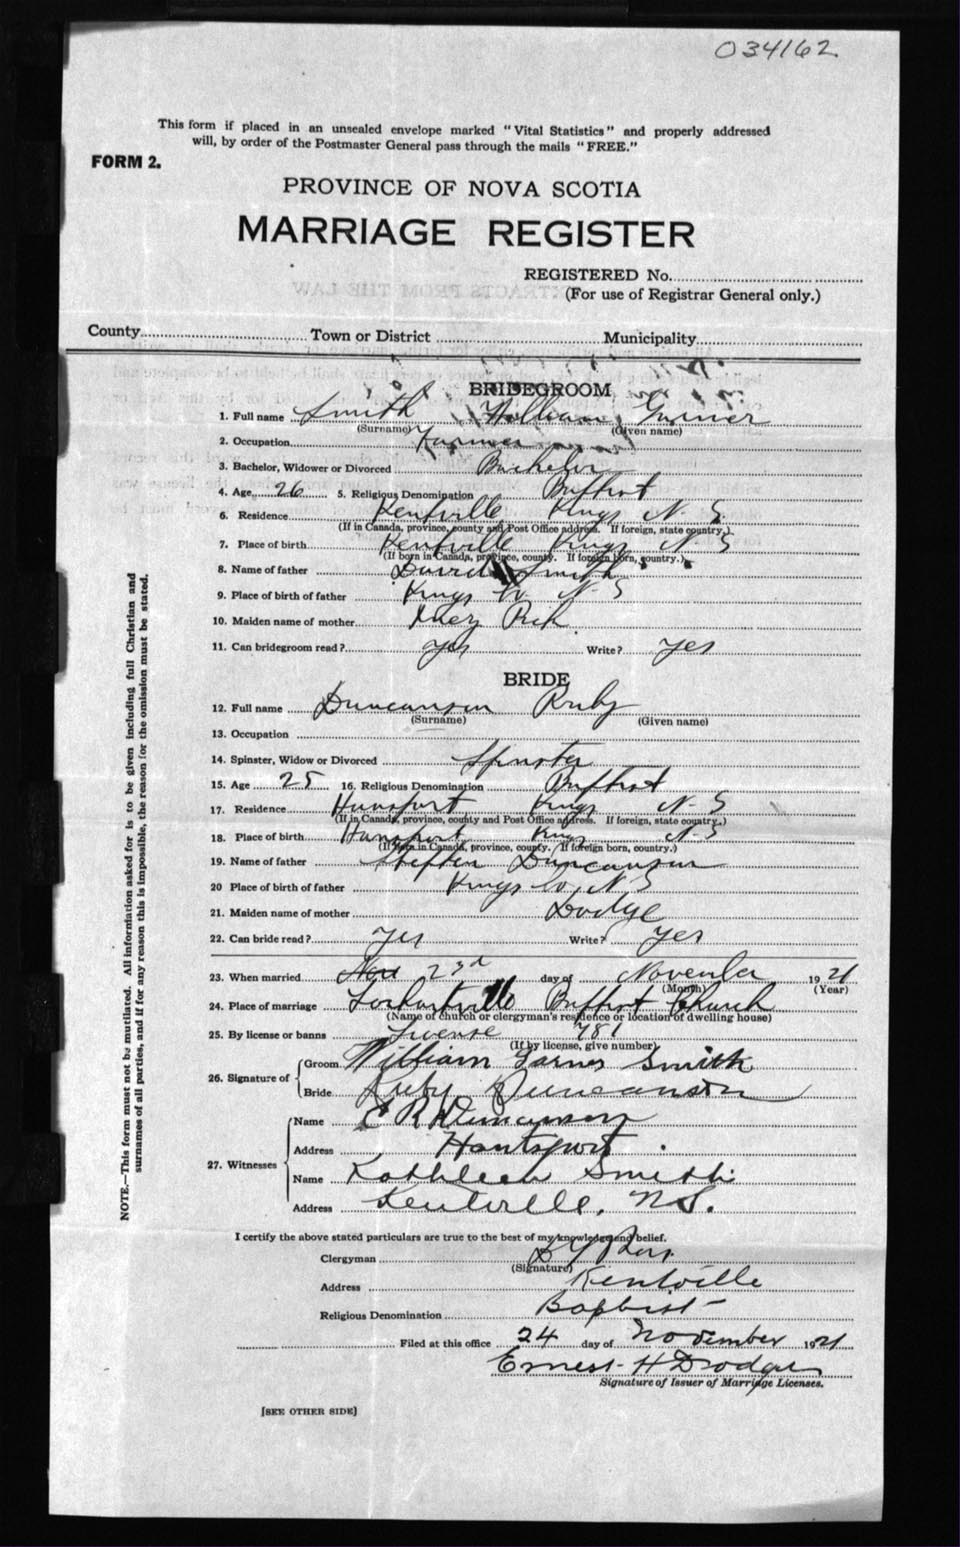 034162
This form if placed in an unsealed envelope marked "Vital Statistics" and properly addressed
will, by order of the Postmaster General pass through the mails "FREE."
FORM 2.
PROVINCE OF NOVA SCOTIA
MARRIAGE REGISTER
REGISTERED No.
(For use of Registrar General only.)
County Town or District Municipality
BRIDEGROOM
1. Full name Smith William
(Surname) (Given name)
2. Occupation Farmer
3. Bachelor, Widower or Divorced Bachelor
4. Age 26 5. Religious Denomination Baptist
6. Residence Kentville Kings N S
(If in Canada, province, county and Post Office address. If foreign, state country.)
7. Place of birth Kentville Kings N S
(If born in Canada, province, county. If foreign born, country.)
8. Name of father David Smith
9. Place of birth of father Kings Co N S
10. Maiden name of mother
11. Can bridegroom read? yes Write? yes
BRIDE
12. Full name Duncanson Ruby
(Surname) (Given name)
13. Occupation
14. Spinster, Widow or Divorced Spinster
15. Age 25 16. Religious Denomination Baptist
17. Residence Hansport Kings N-S
(If in Canada, province, county and Post Office address. If foreign, state country.)
18. Place of birth Hansport Kings N-S
(If born in Canada, province, county. If foreign born, country.)
19. Name of father Stephen Duncanson
20 Place of birth of father Kings Co, N S
21. Maiden name of mother Dodge
22. Can bride read? yes Write? yes
23. When married 23rd day of November 1921
(Month) (Year)
24. Place of marriage Lockartville Baptist Church
(Name of church or clergyman's residence or location of dwelling house)
25. By license or banns License 781
(If by license, give number)
26. Signature of
Groom William Garner Smith
Bride Ruby Duncanson
27. Witnesses
Name Duncanson
Address Hantsport
Name Kathleen Smith
Address Kentville, N.S.
I certify the above stated particulars are true to the best of my knowledge and belief.
Clergyman
(Signature)
Address Kentville
Religious Denomination Baptist
Filed at this office 24 day of November 1921
Ernest H Dodge
Signature of Issuer of Marriage Licenses.
[SEE OTHER SIDE]
NOTE.—This form must not be mutilated. All information asked for is to be given including full Christian and
surnames of all parties, and if for any reason this is impossible, the reason for the omission must be stated.